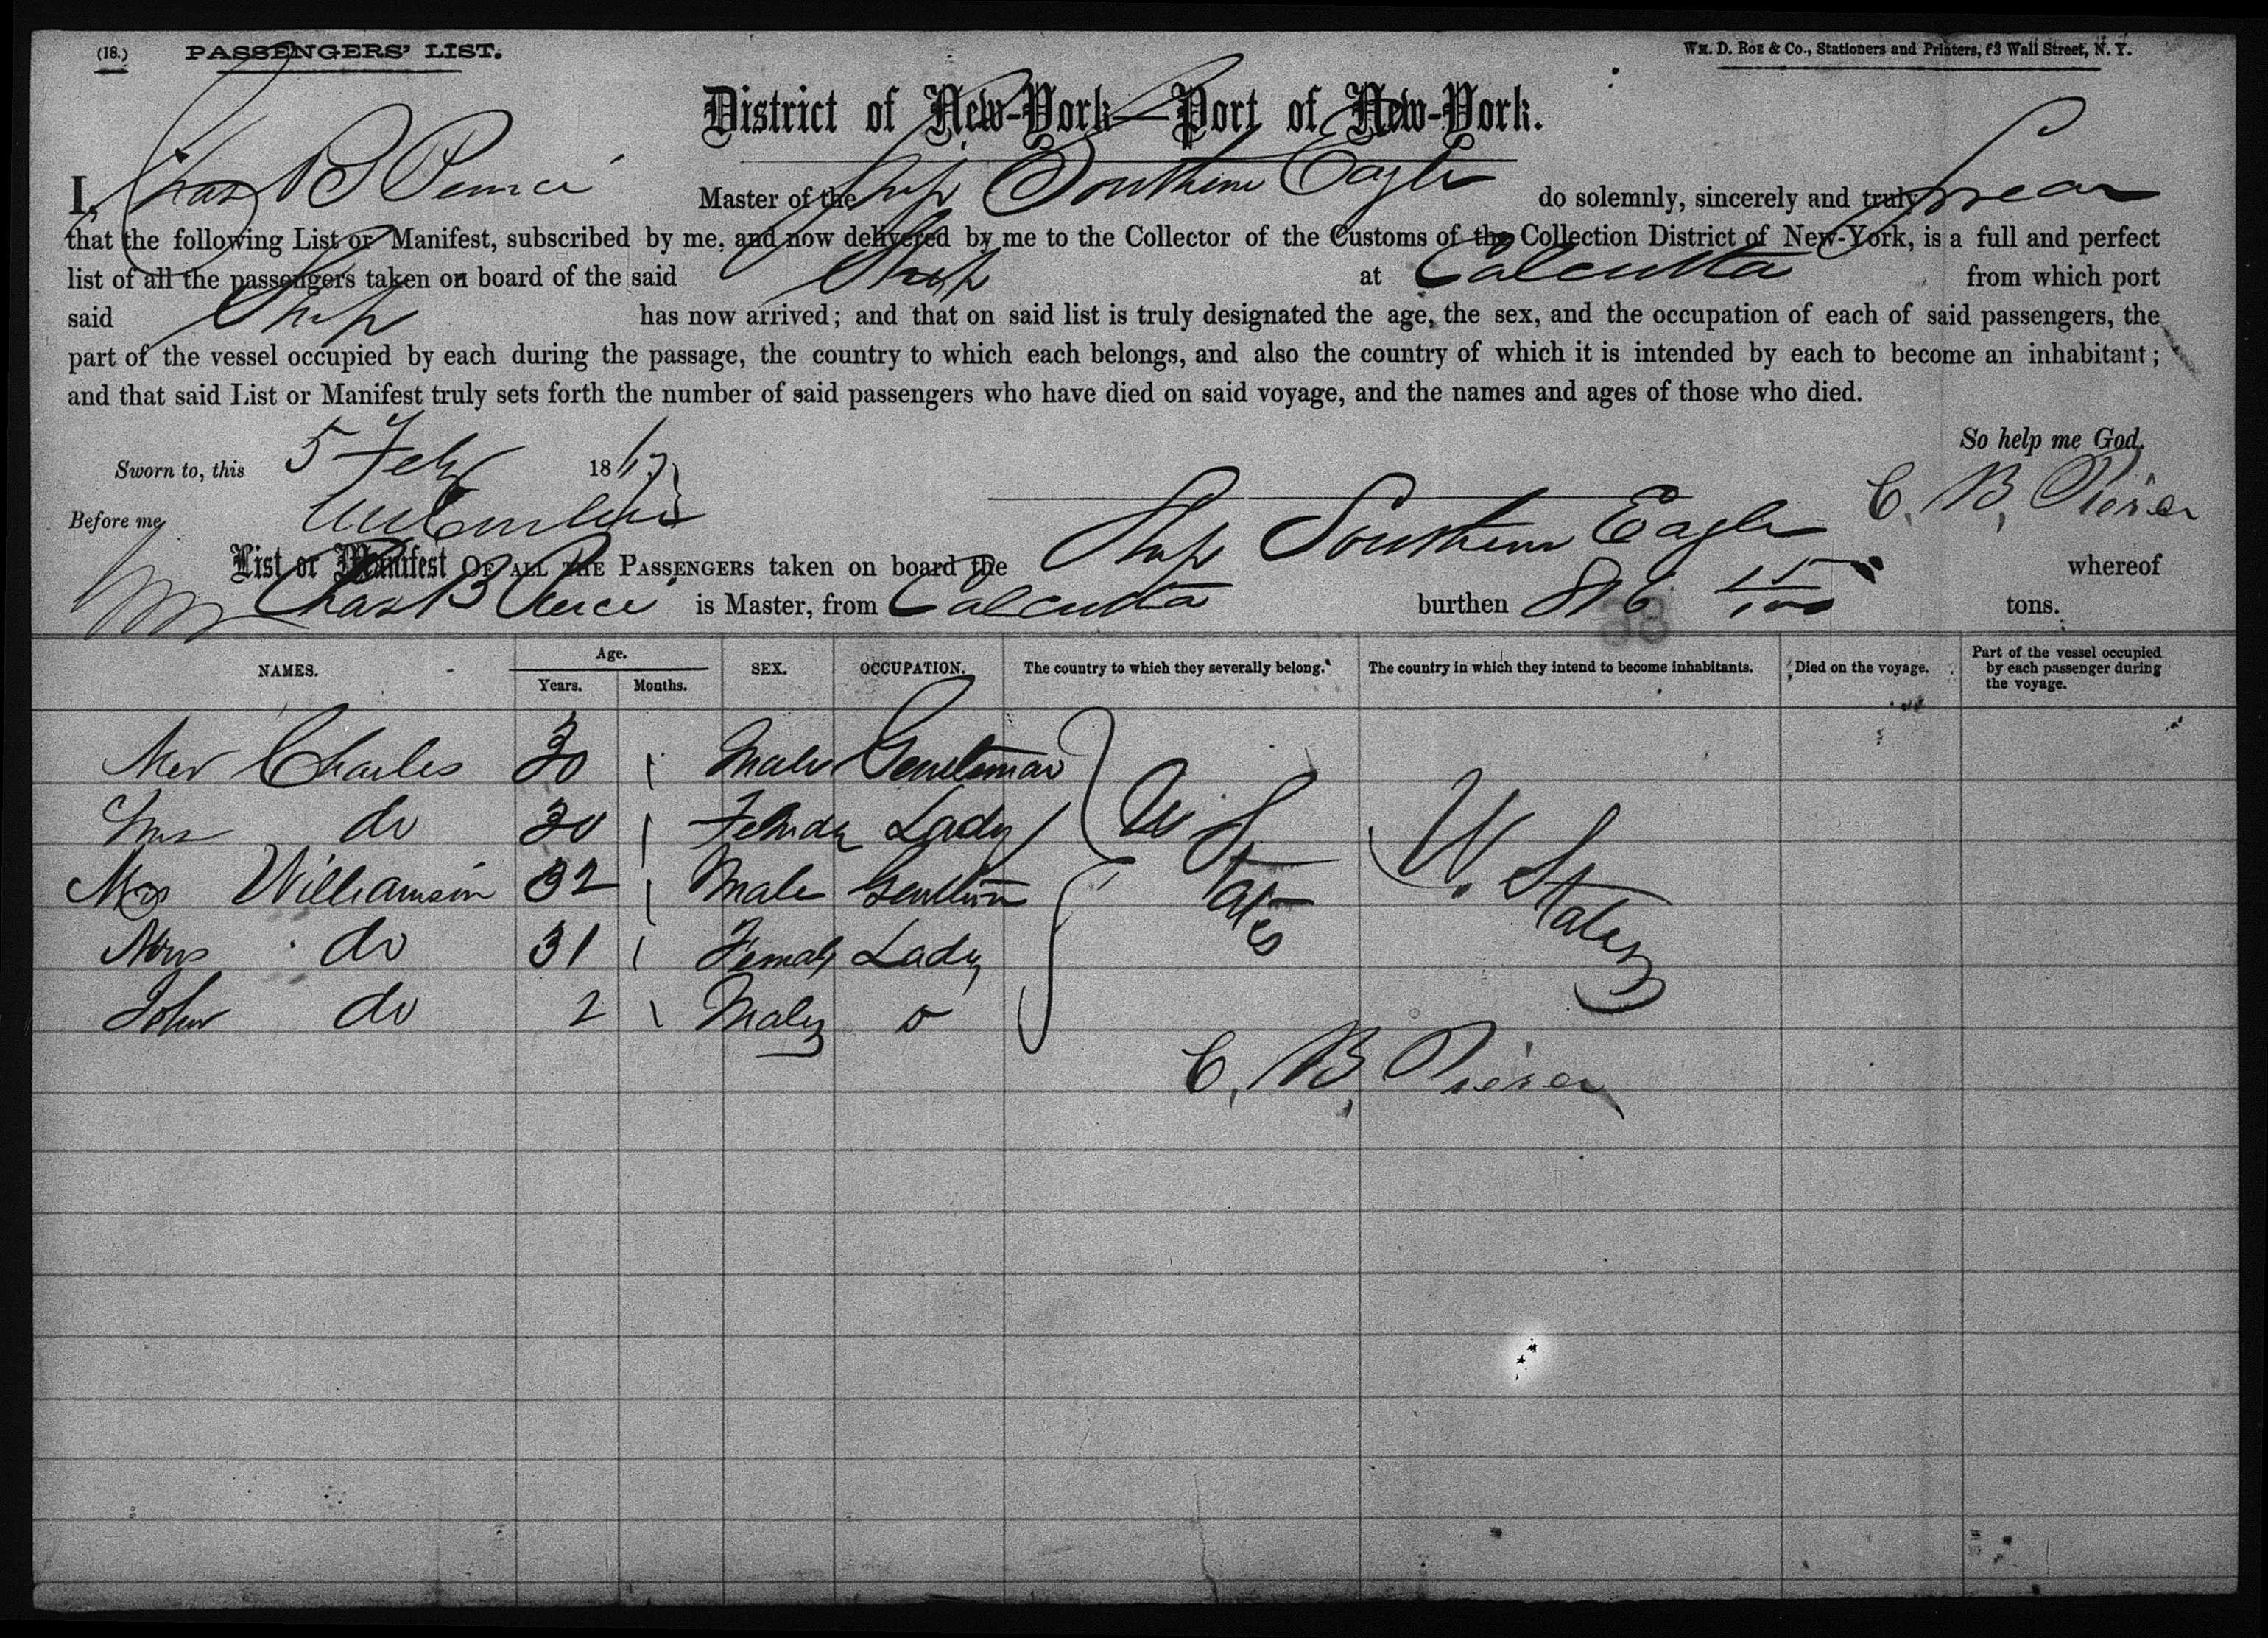 (18.) PASSENGERS' LIST. Wm. D. Roe & Co., Stationers and Printers, 63 Wall Street, N. Y.
District of New-York—Port of New-York.
I, Chas B Peirce Master of the Ship Southern Eagle do solemnly, sincerely and truly swear
that the following List or Manifest, subscribed by me, and now delivered by me to the Collector of the Customs of the Collection District of New-York, is a full and perfect
list of all the passengers taken on board of the said Ship at Calcutta from which port
said Ship has now arrived; and that on said list is truly designated the age, the sex, and the occupation of each of said passengers, the
part of the vessel occupied by each during the passage, the country to which each belongs, and also the country of which it is intended by each to become an inhabitant;
and that said List or Manifest truly sets forth the number of said passengers who have died on said voyage, and the names and ages of those who died.
So help me God.
Sworn to, this 5 Feby 186
Before me C. B. Peirce
List or Manifest OF ALL THE PASSENGERS taken on board the Ship Southern Eagle whereof
Chas B Peirce is Master, from Calcutta burthen 816 15/100 tons.
NAMES. Age. Years. Months. SEX. OCCUPATION. The country to which they severally belong. The country in which they intend to become inhabitants. Died on the voyage. Part of the vessel occupied by each passenger during the voyage.
Mr Charles 30 Male Gentleman
Mrs do 30 Female Lady U States U. States
Mr Williamson 32 Male Gentleman
Mrs do 31 Female Lady
John do 2 Male o
C. B. Peirce